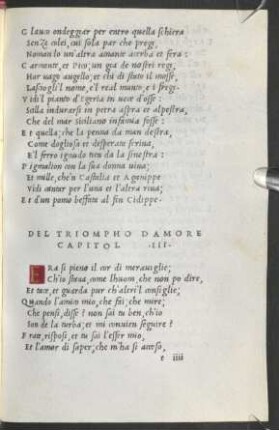 Glauco ondeggiar per entro quella schiera
Senza colei, cui sola par che pregi,
Nomando un'altra amante acerba et fera:
Carmente, et Pico; un gia de nostri regi,
Hor vago augello; et chi di stato il mosse,
Lasciogli'l nome, e'l real manto, e i fregi.
Vidi'l pianto d'Egeria in vece d'osse
Scilla indurarsi in petra aspra et alpestra,
Che del mar siciliano infamia fosse:
Et quella; che la penna da man destra,
Come dogliosa et desperata scriva,
E'l ferro ignudo tien da la sinestra:
Pigmalion con la sua donna viva;
Et mille, che'n Castalia et Aganippe
Vidi cantar per l'una et l'altra riva;
Et d'un pomo beffata al fin Cidippe.
DEL TRIOMPHO D'AMORE
CAPITOL .III.
ERa si pieno il cor di marauiglie;
Ch'io staua, come lhuom, che non po dire,
Et tace, et guarda pur ch'altri'l consiglie;
Quando l'amico mio, che fai; che mire;
Che pensi, disse? non sai tu ben, ch'io
Son de la turba; et mi conuien seguire?
Frate, risposi, et tu sai l'esser mio,
Et l'amor di saper; che m'ha si acceso,
e iiii